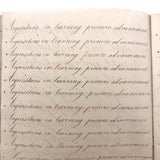 Acquisitions in learning procure advancement
Acquisitions in learning procure advancement
Acquisitions in learning procure advancement
Acquisitions in learning procure advancement
Acquisitions in learning procure advancement
Acquisitions in learning procure advancement
Acquisitions in learning procure advancement
Acquisitions in learning procure advancement
Acquisitions in learning procure advancement
Acquisitions in learning procure advancement
Acquisitions in learning procure